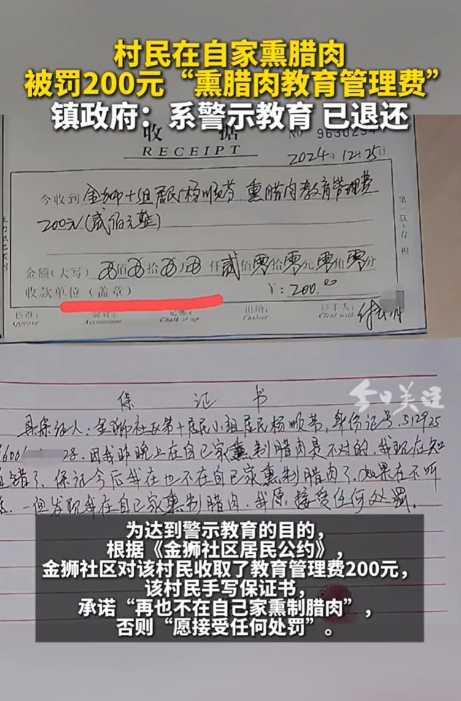 村民在自家熏腊肉
被罚200元“熏腊肉教育管理费”
镇政府：系警示教育 已退还
收 据
RECEIPT
№ 96302
2024年12月25日
今收到 金狮十组居民杨顺芬 熏腊肉教育管理费
200元(贰佰元整)
金额(大写) 佰 拾 万 仟 贰佰 零拾 零元 零角 零分
收款单位(盖章)
¥：200.00
今日关注
保 证 书
具保证人：金狮社区第十居民小组居民杨顺芬，身份证号：512925
因我昨晚上在自己家熏制腊肉是不对的，我现在知
道错了，保证今后我在也不在自己家熏制腊肉了，如果在不听
一但发现我在自己家熏制腊肉，我愿接受任何处罚。
为达到警示教育的目的，
根据《金狮社区居民公约》，
金狮社区对该村民收取了教育管理费200元，
该村民手写保证书，
承诺“再也不在自己家熏制腊肉”，
否则“愿接受任何处罚”。